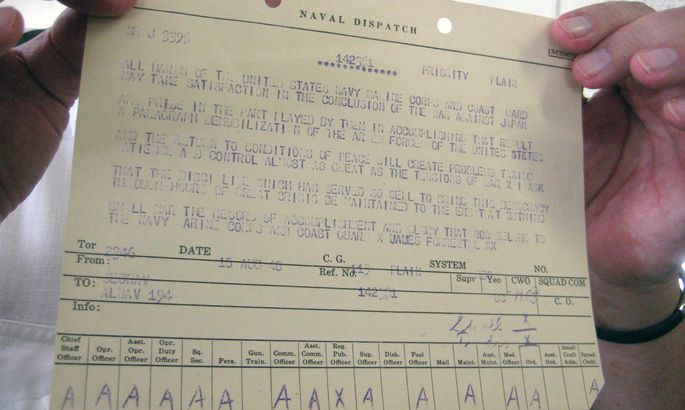 NAVAL DISPATCH
NR J 3396
142351 PRIORITY PLAIN
ALL HANDS OF THE UNITED STATES NAVY MARINE CORPS AND COAST UARD
MAY TAKE SATISFACTION IN THE CONCLUSION OF THE WAR AGAINST JAPAN
AND PRIDE IN THE PART PLAYED BY THEM IN ACCOMPLISHING THAT RE ULT
X PARAGRAPH DEMOBILIZATI N OF THE AR ED FORCES OF THE UNITED STATES
AND THE RETURN TO CONDITIONS OF PEACE WILL CREATE PROBLEMS TAXING
PATIENCE A D CONTROL ALMOST AS GREAT AS THE TENSIONS OF WAR X I ASK
THAT THE DISCI LINE WHICH HAS SERVED SO WELL TO BRING THIS DEMOCRACY
THROUGH HOURS OF GREAT CRISIS BE MAINTAINED TO THE END THAT NOTHING
SHALL MAR THE RECORD OF ACCOMPLISHMENT AND GLORY THAT NOW BELONG TO
THE NAVY ARINE CORPS AND COAST GUARD X JAMES FORRESTAL XX
Tor 2346 DATE 15 AUG 45 C. G. SYSTEM NO.
From: Ref. No. PLAIN Supv Yeo CWO SQUAD COM
TO: SECNAV 142351 C. O.
ALNAV 194
Info:
Chief Staff Officer Opr. Officer Asst. Opr. Officer Opr. Duty Officer Sq. Sec. Pers. Gun. Train. Comm. Officer Asst. Comm. Officer Reg. Pub. Officer Sup. Officer Disb. Officer Fuel Officer Mail Maint. Asst. Maint. Med. Officer Asst. Ord. Small Craft Adm. Squad. Comdr.
A A A A A A A A X A A A A A A